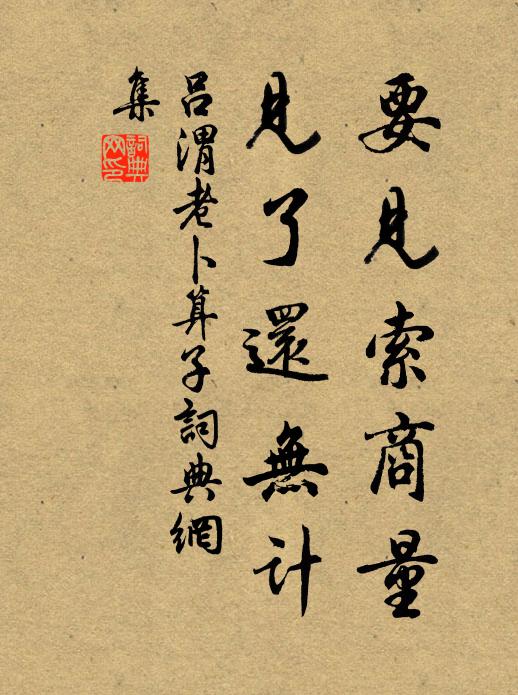 要見索商量
見了還無计
呂渭老卜算子詞典網
集
詞典
网印